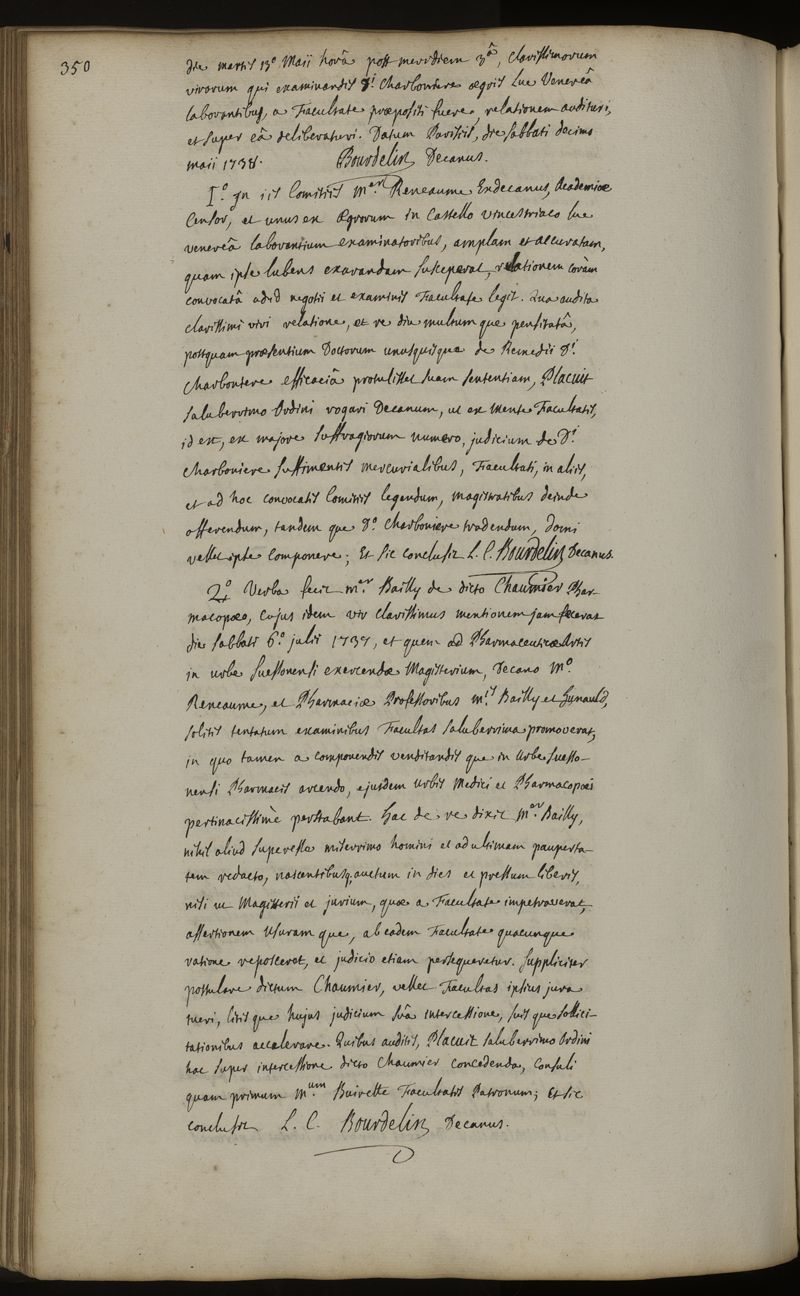 350
die martis 13º Maii horâ post meridiem 3ª, clarissimorum
virorum qui examinandis Di Charbonniere ægris lue Venereâ
laborantibus, a Facultate præpositi fuere, relationem audituri,
et super eâ deliberaturi. Datum Parisiis, die sabbati decimo
maii 1738. Bourdelin Decanus.
Iº. In iis Comitiis Mer. Reneaume Exdecanus, Academiæ
Censor, et unus ex Ægrorum in Castello vincestriaco lue
venereâ laborantium examinatoribus, amplam et accuratam,
quam ipse lubens exarandam susceperat, relationem coràm
convocatâ ad id negotii et examinis Facultate legit. Qua audita
clarissimi viri relatione, et re diu multum que pensitatâ,
postquam præsentium Doctorum unusquisque de Remedii Di.
Charboniere efficaciâ protulisset suam sententiam, Placuit
saluberrimo Ordini rogari Decanum, ut ex mente Facultatis,
id est, ex majore suffragiorum numero, judicium de Di.
Charboniere suffimentis mercurialibus, Facultati, in aliis,
et ad hoc convocatis Comitiis legendum, magistratibus deinde
offerendum, tandem que Dº. Charboniere tradendum, domi
vellet ipse componere; Et sic conclusit L. C. Bourdelin Decanus.
2º. Verba fecit Mer. Bailly de dicto Chaumier Phar-
macopœo, cujus idem vir clarissimus mentionem jam fecerat
die sabbati 6º. julii 1737, et quem ad Pharmaceuticæ Artis
in urbe suessonensi exercendæ Magisterium, Decano Mº.
Reneaume, et Pharmaciæ Professoribus Mis. Bailly et Hunauld,
solitis tentatum examinibus Facultas saluberrima promoverat,
in quo tamen a componendis venditandis que in Urbe suesso-
nensi Pharmacis arcendo, ejusdem urbis Medici et Pharmacopœi
pertinacissimè perstabant. Hac de re dixit Mer. Bailly,
nihil aliud superesse miserrimo homini et ad ultimam pauperta-
tem redacto, nascentibusq; auctum in dies et pressum liberis,
nisi ut Magisterii et jurium, quæ a Facultate impetraverat,
assertionem Usuram que, ab eadem Facultate quacunque
ratione reposceret, et judicio etiam persequeretur. Suppliciter
postulare dictum Chaumier, vellet Facultas ipsius jura
tueri, litis que hujus judicium suâ intercessione, suis que sollici-
tationibus accelerare. Quibus auditis, Placuit saluberrimo Ordini
hac super intercessione dicto Chaumier concedenda, Consuli
quam primum Mum. Buirette Facultatis Patronum; Et sic
conclusit L. C. Bourdelin Decanus.